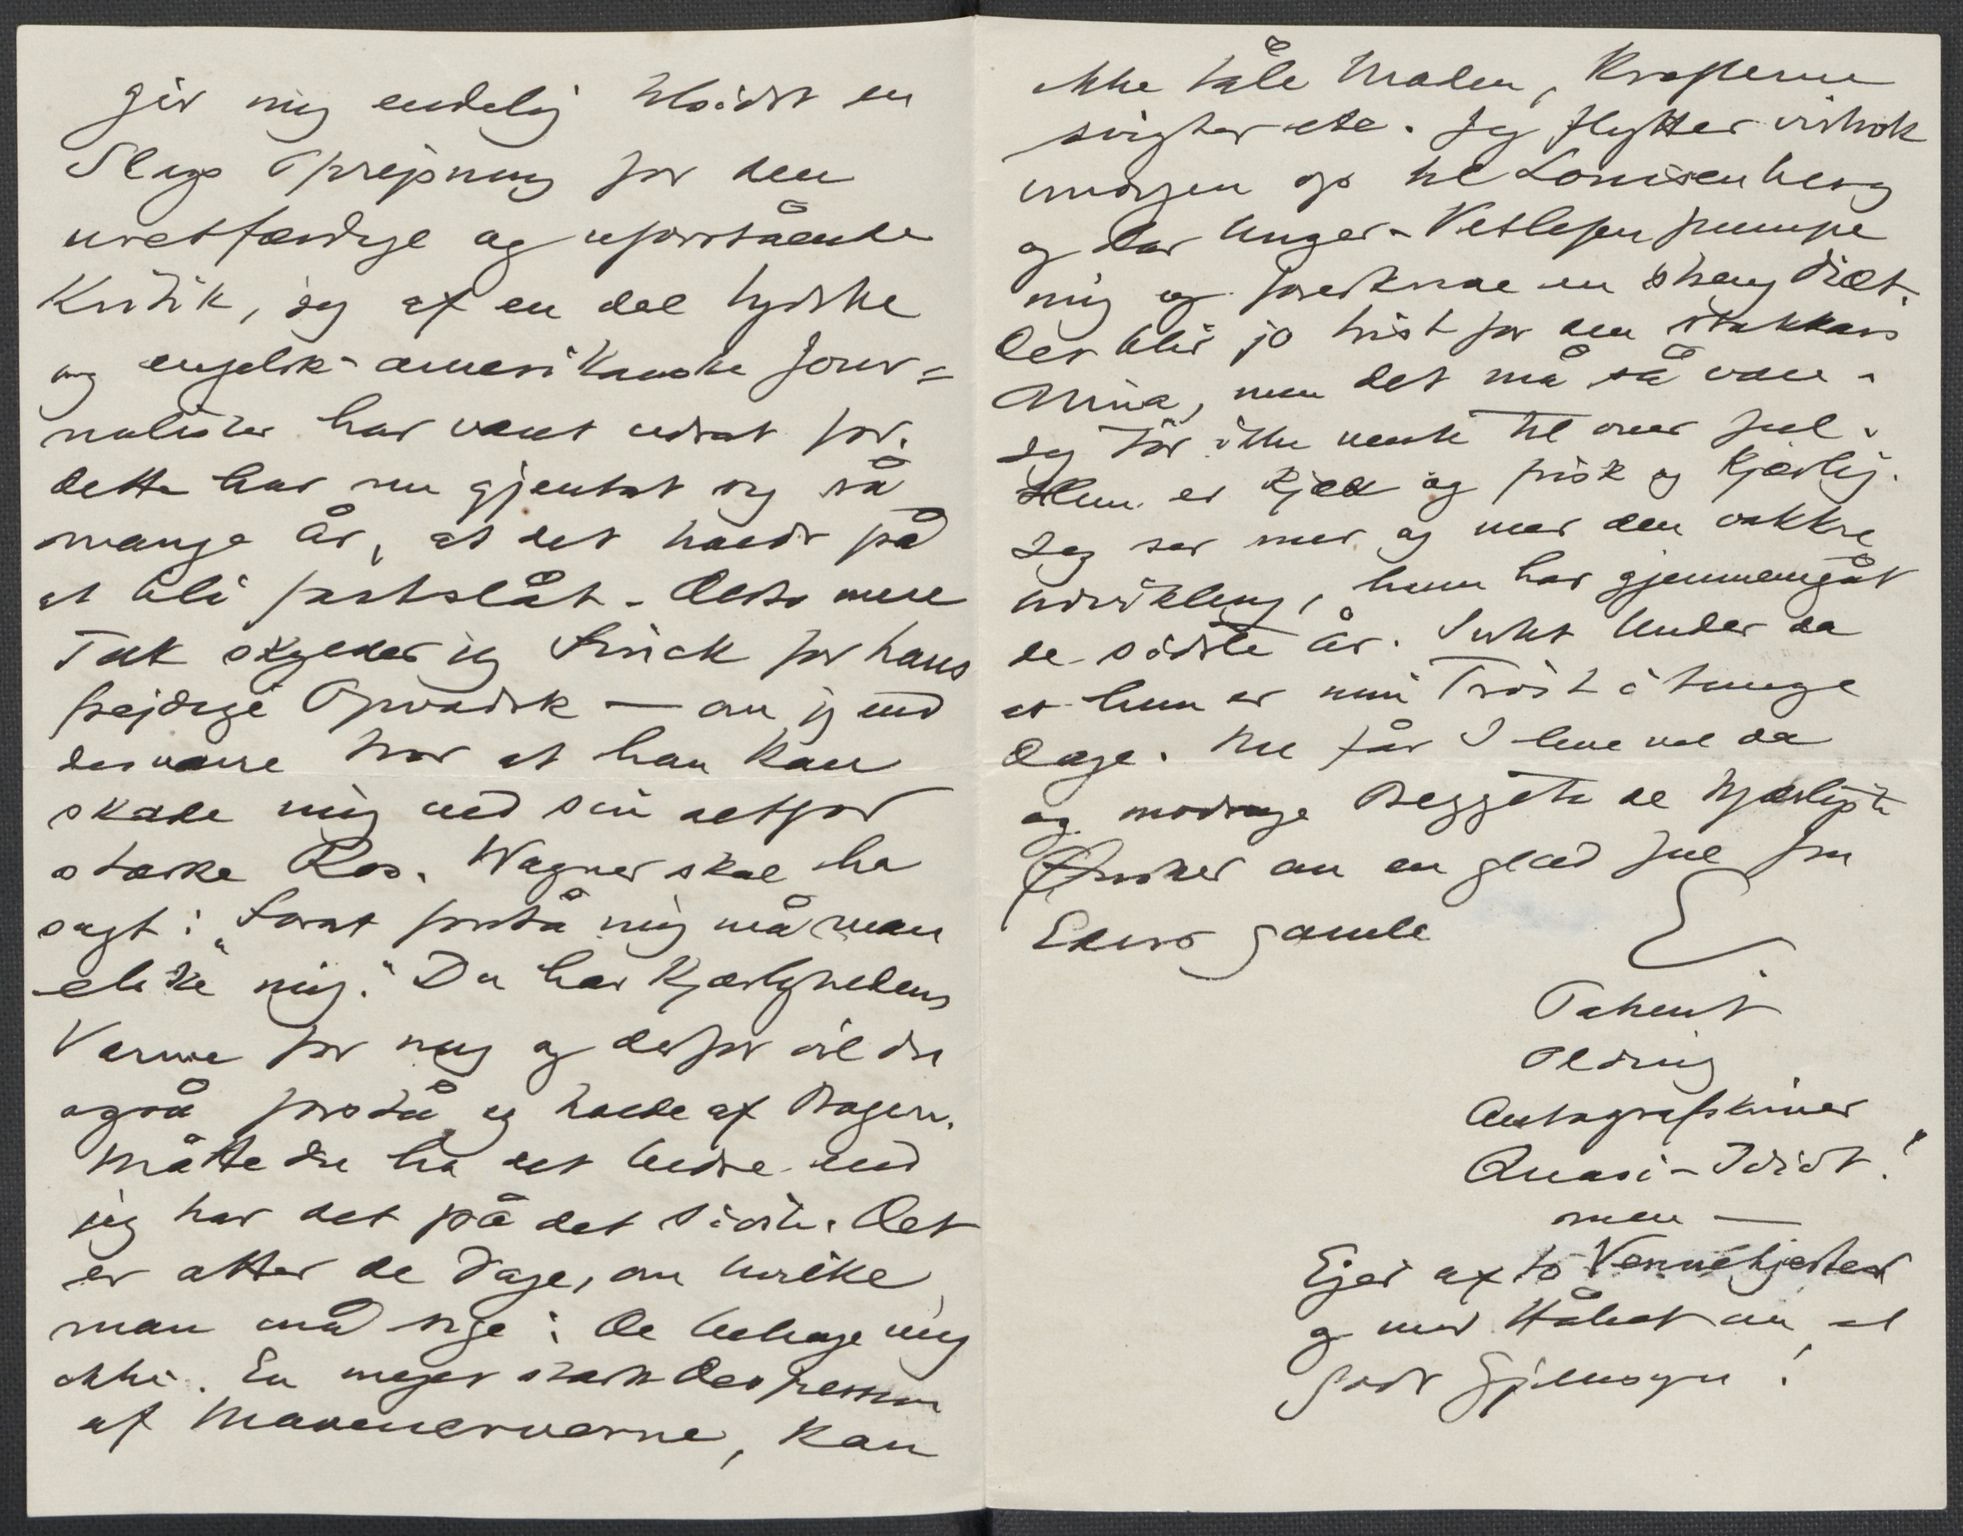 gir mig endelig tilsidst en
Slags Oprejsning for den
uretfærdige og uforstående
Kritik, jeg af en del tydske
og engelsk-amerikanske Jour=
nalister har været udsat for.
Dette har nu gjentat sig så
mange År, at det holdt på
at bli fastslåt. Desto mere
Tak skylder jeg Finck for hans
frejdige Opvadsk — om jeg end
desværre tror at han kan
skade mig ved sin altfor
stærke Ros. Wagner skal ha
sagt: „Forat forstå mig må man
elske mig." Du har Kjærlighedens
Varme for mig og derfor vil du
også forstå og holde af Bogen.
Måtte du ha det bedre end
jeg har det på det sidste. Det
er atter de Dage, om hvilke
man må sige: De behage mig
ikke. En meget stærk Depression
af Mavenerverne, kan
ikke tåle Maden, Kræfterne
svigter etc. Jeg flytter visnok
imorgen op til Louisenberg
og lar Unger-Vetlesen pumpe
mig og foreskrive en streng Diæt.
Det blir jo trist for den stakkars
Nina, men det må så være.
Jeg tør ikke vente til over Jul.
Hun er kjæk og frisk og kjærlig.
Jeg ser mer og mer den vakkre
Udvikling, hun har gjennemgåt
de sidste år. Intet Under da
at hun er min Trøst i tunge
Dage. Nu får I leve vel da
og modtage Beggeto de hjærtligste
Ønsker om en glad Jul fra
Eders gamle
E
Patient
Olding
Autografskriver
Quasi-Idiot!
men —
Ejer af to Vennehjerter
og med Håbet om et
godt Gjensyn!